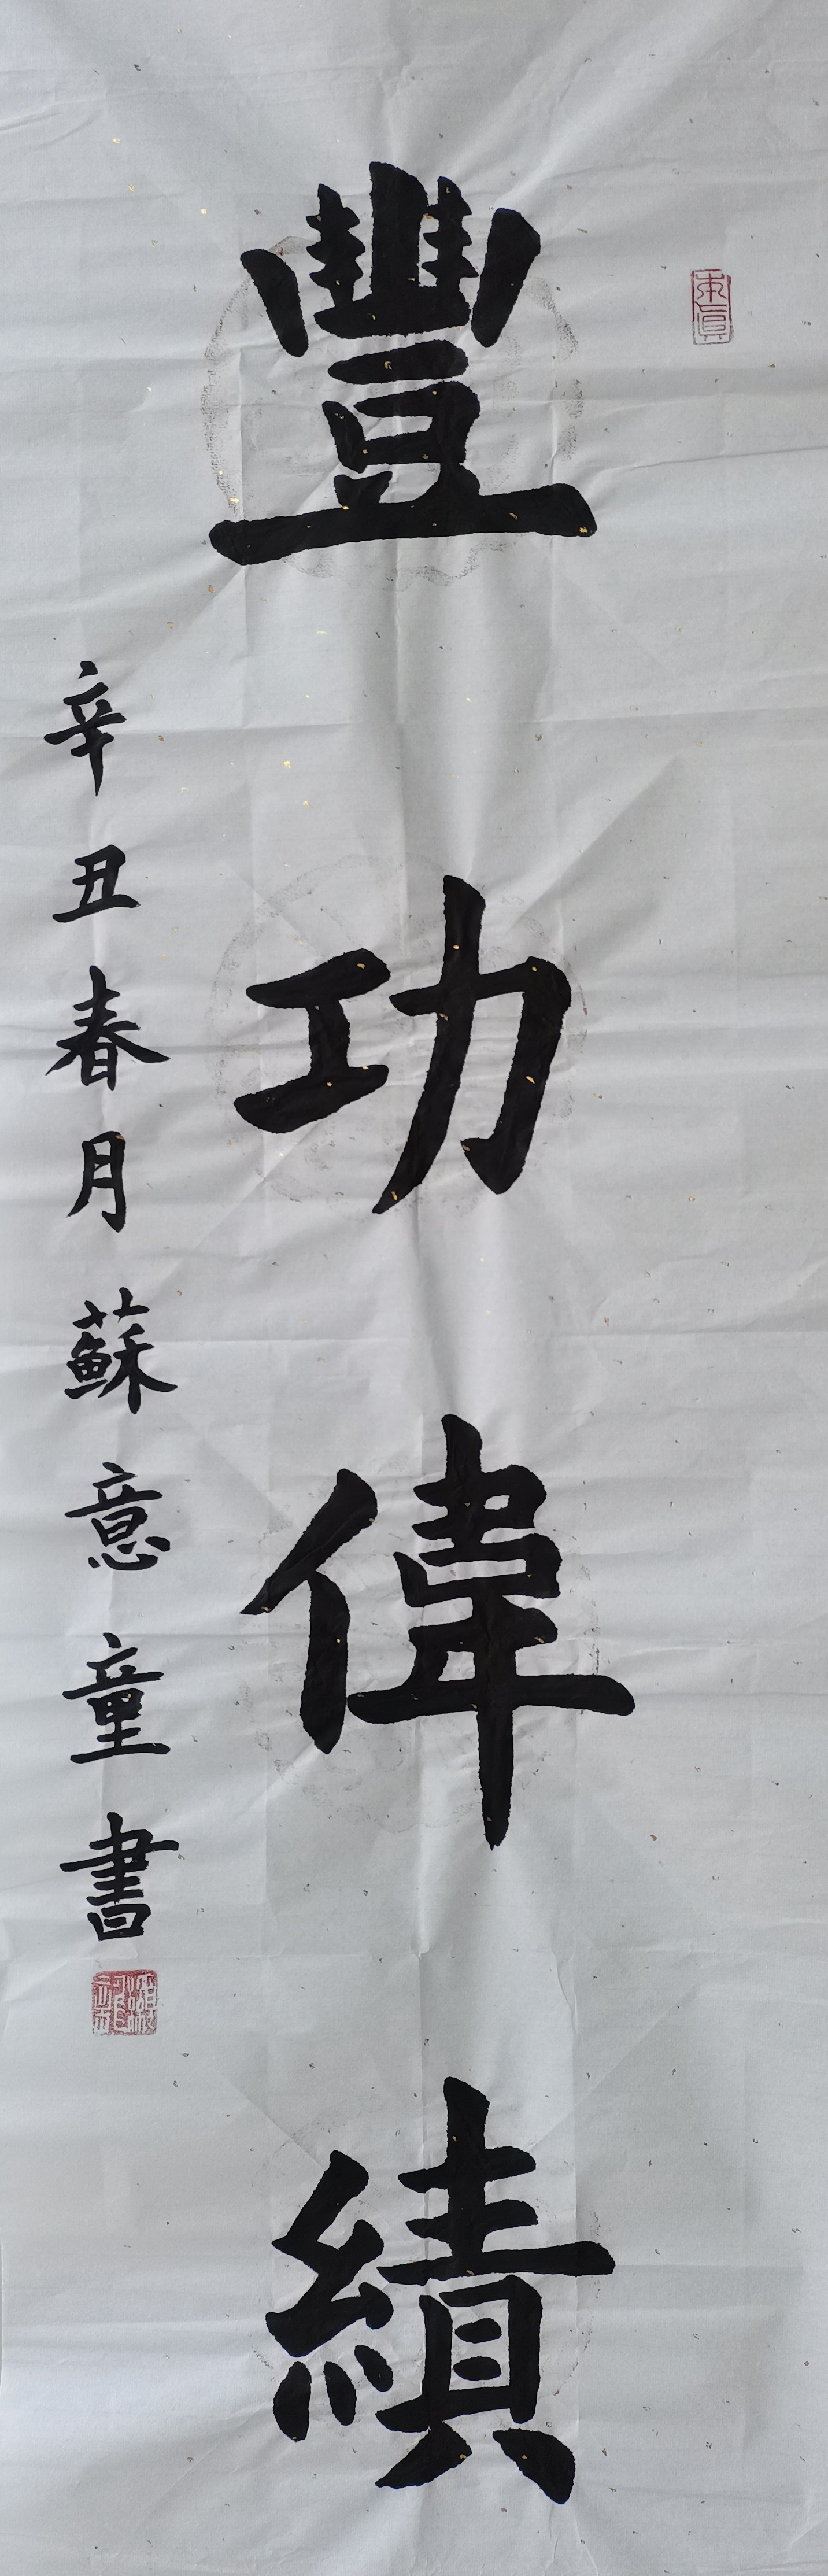 豐功偉績
辛丑春月蘇意童書